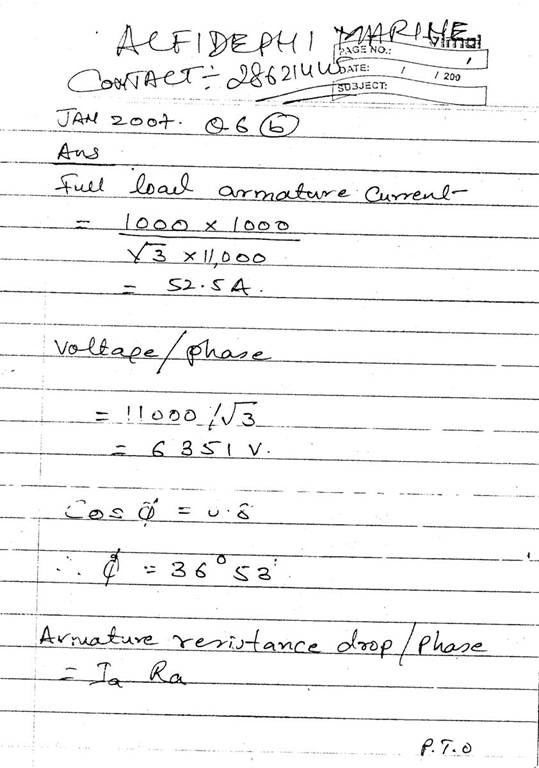 ALFIDEPHI MARINE
vimal
PAGE NO.:
CONTACT :- 28621445
DATE: / / 200
SUBJECT:
JAN 2007. Q6 (b)
Ans
Full load armature current
= 1000 x 1000
√3 x 11,000
= 52.5A.
Voltage/phase
= 11000/√3
= 6351 V.
Cos φ = 0.8
∴ φ = 36° 53'
Armature resistance drop/phase
= Ia Ra
P.T.O